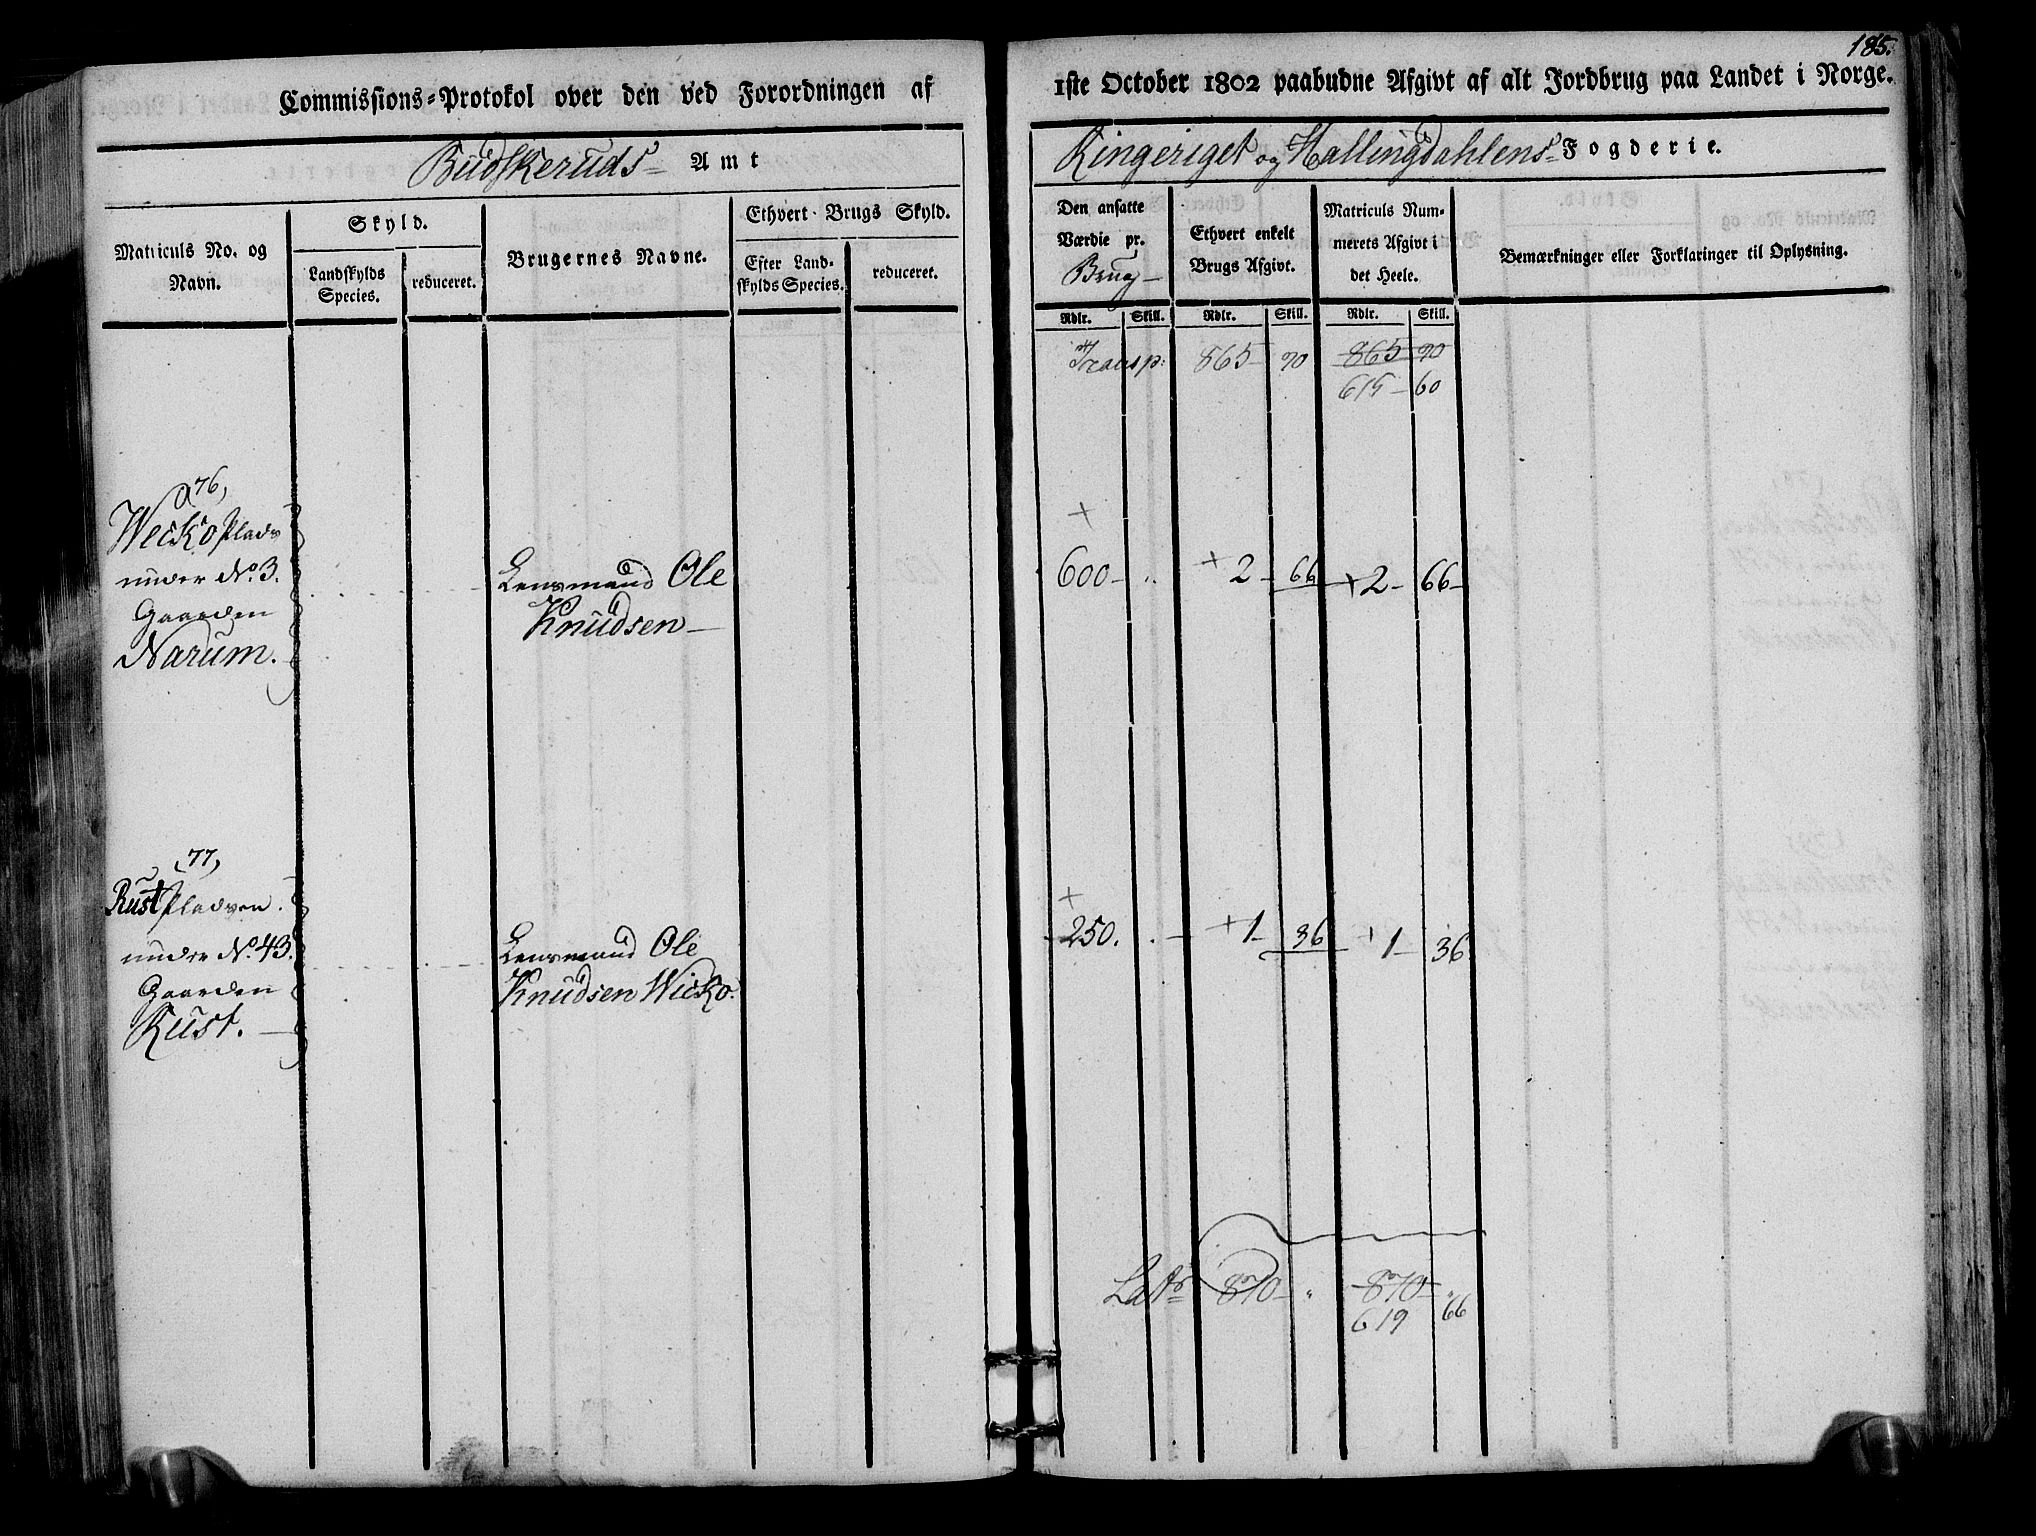 185.
Commissions-Protokol over den ved Forordningen af 1ste October 1802 paabudne Afgivt af alt Jordbrug paa Landet i Norge.
Budskeruds Amt
Ringeriget og Hallingdahlens Fogderie.
Matriculs No. og Navn.
Skyld.
Landskylds Species.
reduceret.
Brugernes Navne.
Ethvert Brugs Skyld.
Efter Landskylds Species.
reduceret.
Den ansatte Værdie pr. Brug
Ethvert enkelt Brugs Afgivt.
Matriculs Nummerets Afgivt i det Heele.
Bemærkninger eller Forklaringer til Oplysning.
Rdlr. Skill. Rdlr. Skill. Rdlr. Skill.
Transp: 865 90 865 90
615 60
76,
Wecko Plads
under No. 3.
Gaarden
Narum.
Lensmand Ole
Knudsen
+
600 - " + 2 - 66 + 2 - 66
77,
Rust Pladsen
under No. 43.
Gaarden
Rust.
Lensmand Ole
Knudsen Wicko.
+
250. . + 1 - 36 + 1 - 36
Latr 870 " 870 "
619 66